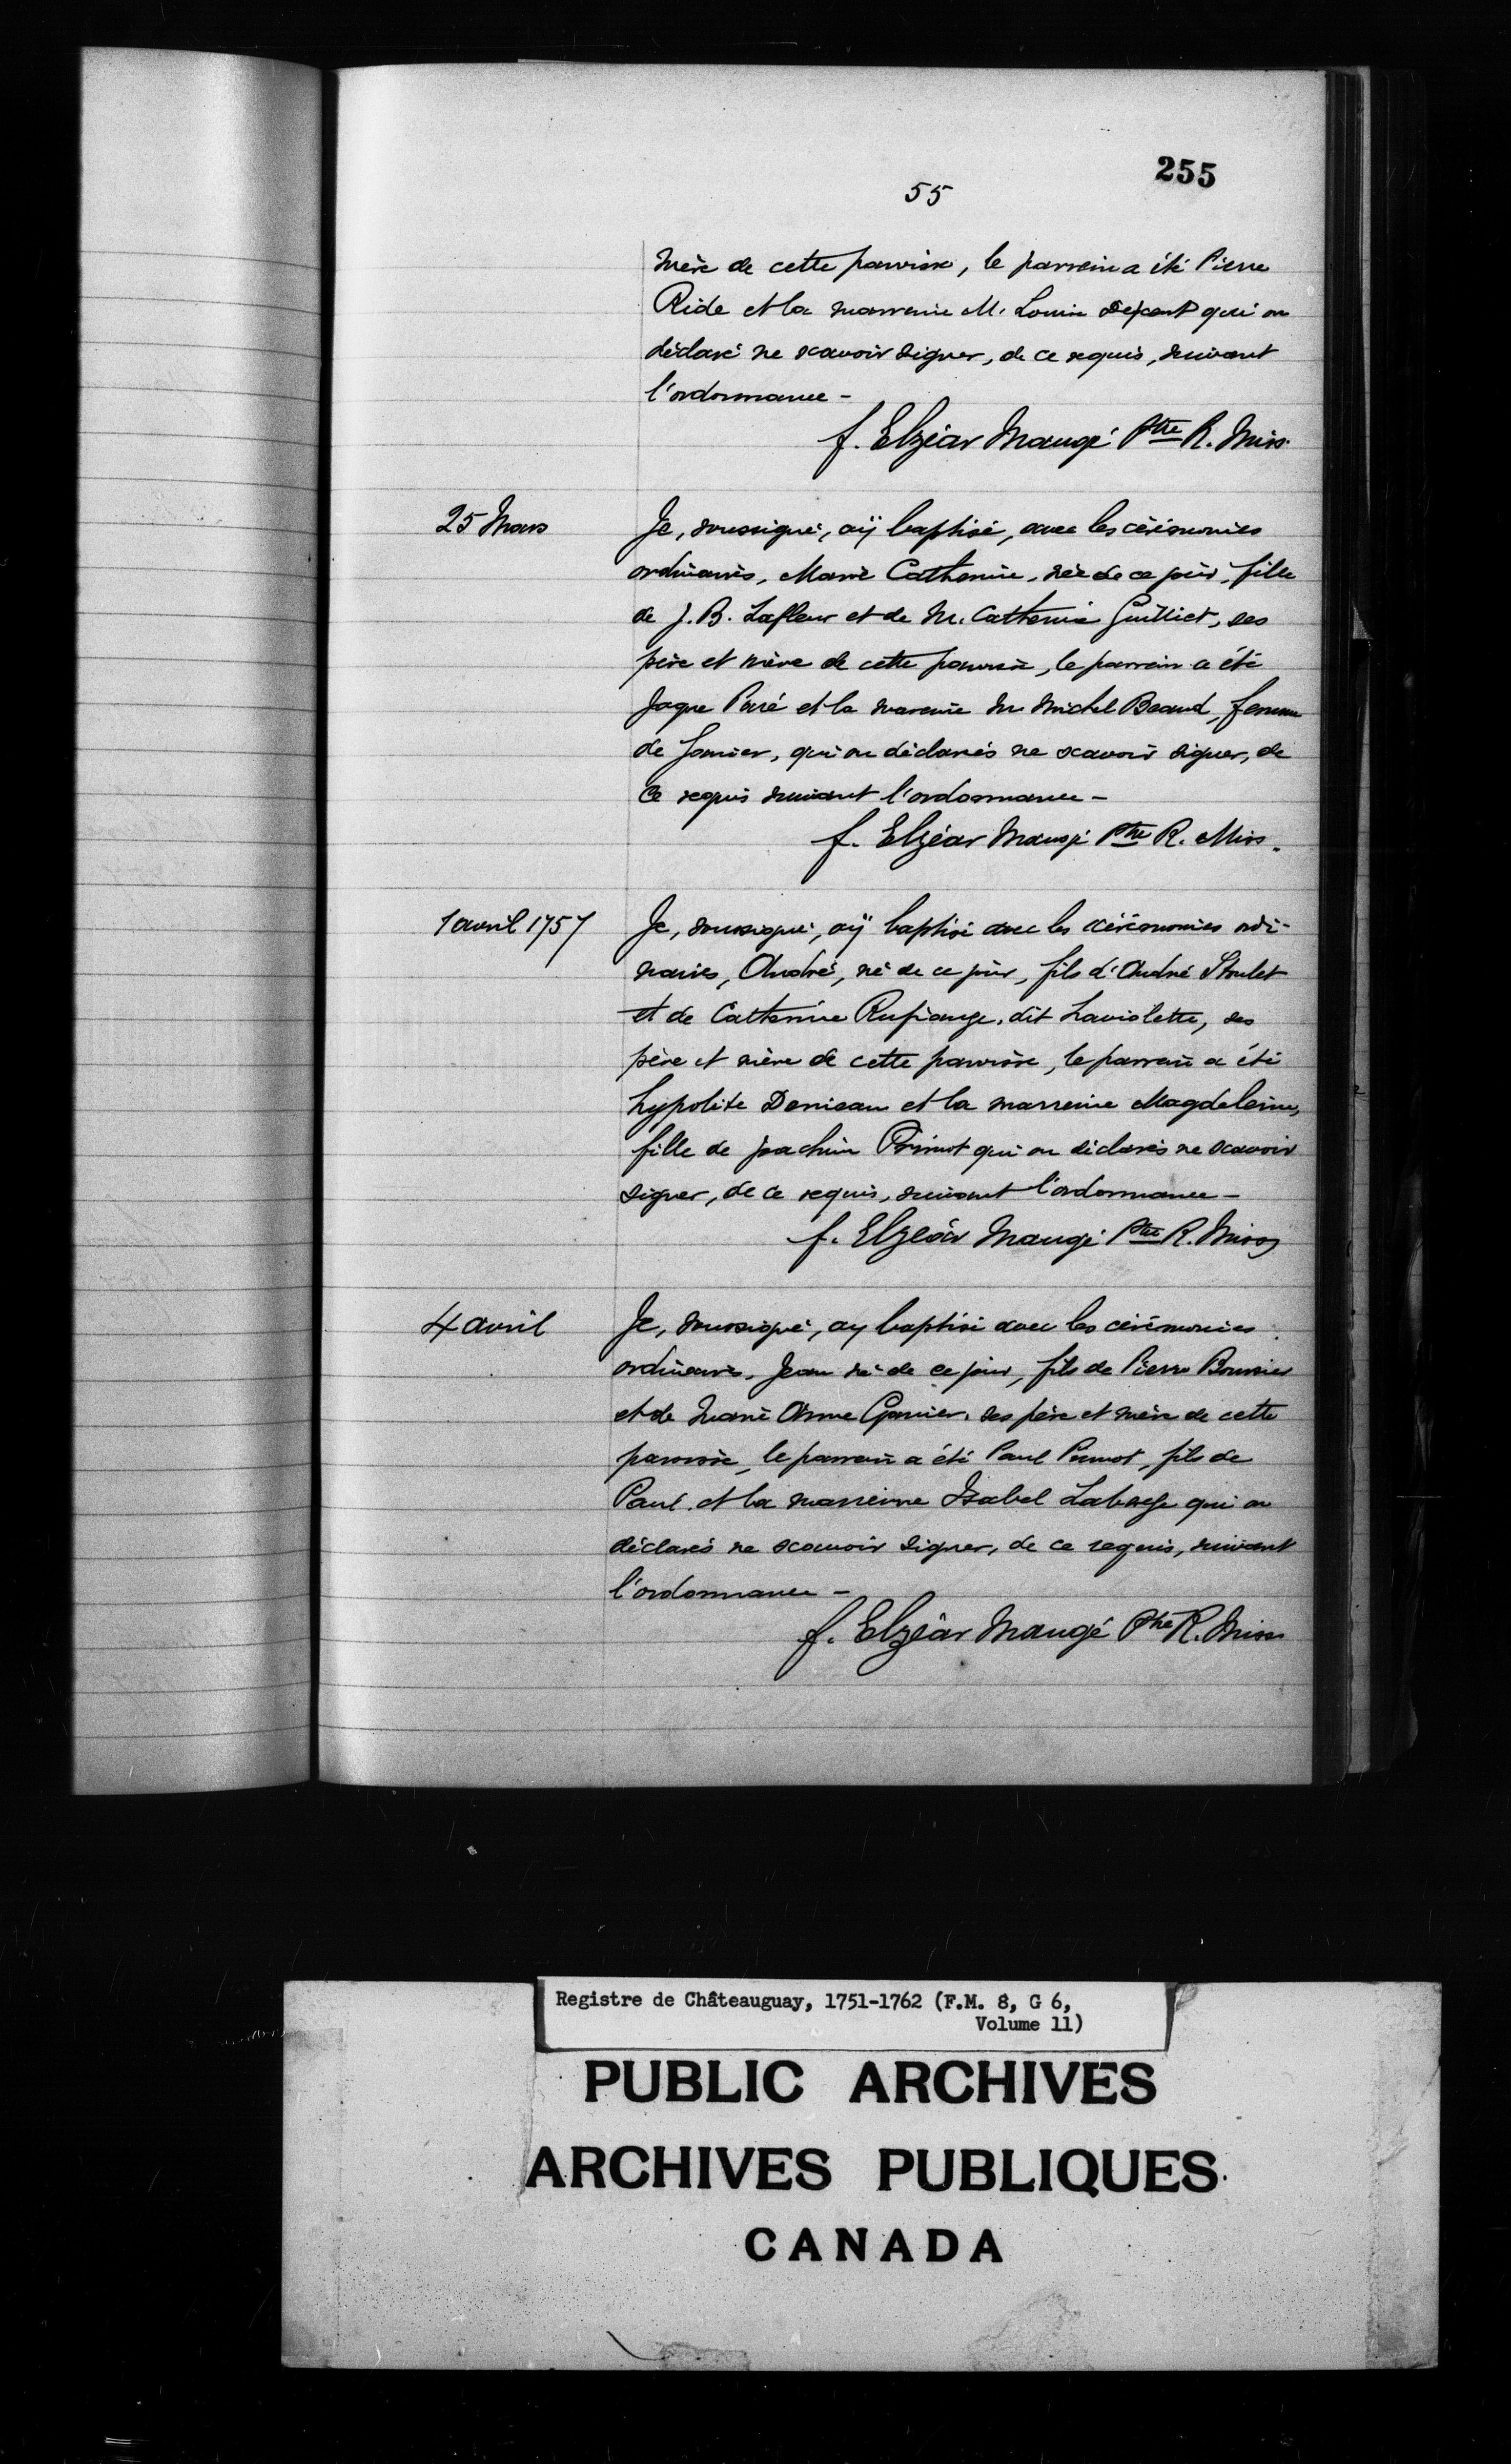 255
55
mère de cette parroisse, le parrein a été Pierre
Ride et la marreine M. Louise qui on
déclaré ne scavoir signer, de ce requis, suivant
l'ordonnance -
f. Elzéar Maugé Ptre R. Miss.
25 Mars
Je, soussigné, aÿ baptisé, avec les cérémonies
ordinaires, Marie Catherine, née de ce jour, fille
de J. B. Lafleur et de M. Catherine Guilliet, ses
père et mère de cette parroisse, le parrein a été
Jaque Paré et la mareine M. Michel Beaud, femme
de qui on déclarés ne scavoir signer, de
ce requis suivant l'ordonnance -
f. Elzéar Maugé Ptre R. Miss.
1 avril 1757
Je, soussigné, aÿ baptisé avec les cérémonies ordi-
naires, André, né de ce jour, fils d'André
et de Catherine Rufiange, dit Laviolette, ses
père et mère de cette parroisse, le parrein a été
hypolite Denieau et la marreine Magdeleine,
fille de joachim Primot qui on déclarés ne scavoir
signer, de ce requis, suivant l'ordonnance -
f. Elzéar Maugé Ptre R. Miss
4 avril
Je, soussigné, ay baptisé avec les cérémonies
ordinaires, Jean né de ce jour, fils de Pierre Boursier
et de Marie Anne Garnier, ses père et mère de cette
parroisse, le parrein a été Paul Primot, fils de
Paul et la marreine Isabel Laberge qui on
déclarés ne scavoir signer, de ce requis, suivant
l'ordonnance -
f. Elzéar Maugé Ptre R. Miss
Registre de Châteauguay, 1751-1762 (F.M. 8, G 6,
Volume 11)
PUBLIC ARCHIVES
ARCHIVES PUBLIQUES
CANADA